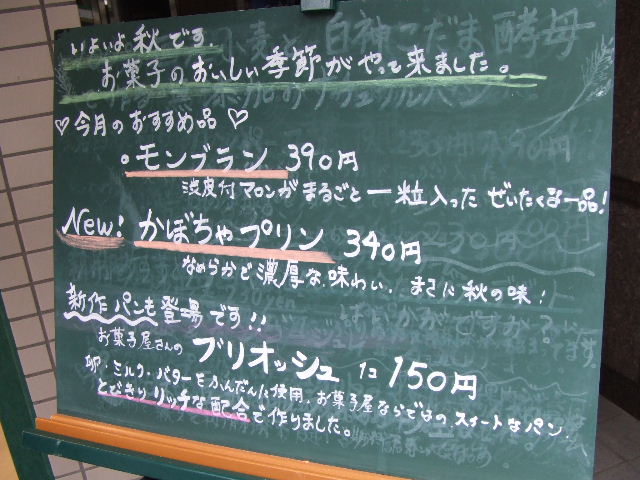 いよいよ秋です
お菓子のおいしい季節がやって来ました。
♡今月のおすすめ品♡
。モンブラン 390円
渋皮付マロンがまるごと一粒入った ぜいたくな一品!
New! かぼちゃプリン 340円
なめらかで濃厚な味わい。まさに秋の味!
新作パンも登場です!!
お菓子屋さんの ブリオッシュ 1コ 150円
卵・ミルク・バターをふんだんに使用。お菓子屋ならではのスイートなパン
とびきりリッチな配合で作りました。
白神こだま酵母